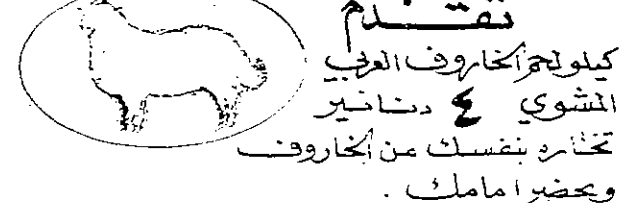 تقدم
كيلو لحم الخاروف العربي
المشوي ٤ دنانير
تختاره بنفسك عن الخاروف
ويحضر امامك .